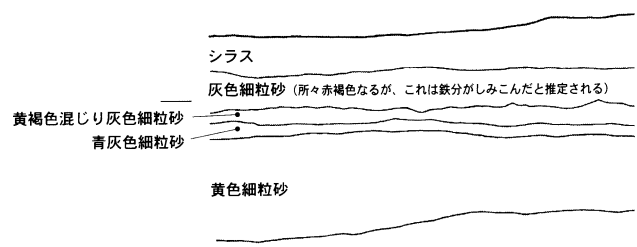 シラス
灰色細粒砂（所々赤褐色なるが、これは鉄分がしみこんだと推定される）
黄褐色混じり灰色細粒砂
青灰色細粒砂
黄色細粒砂